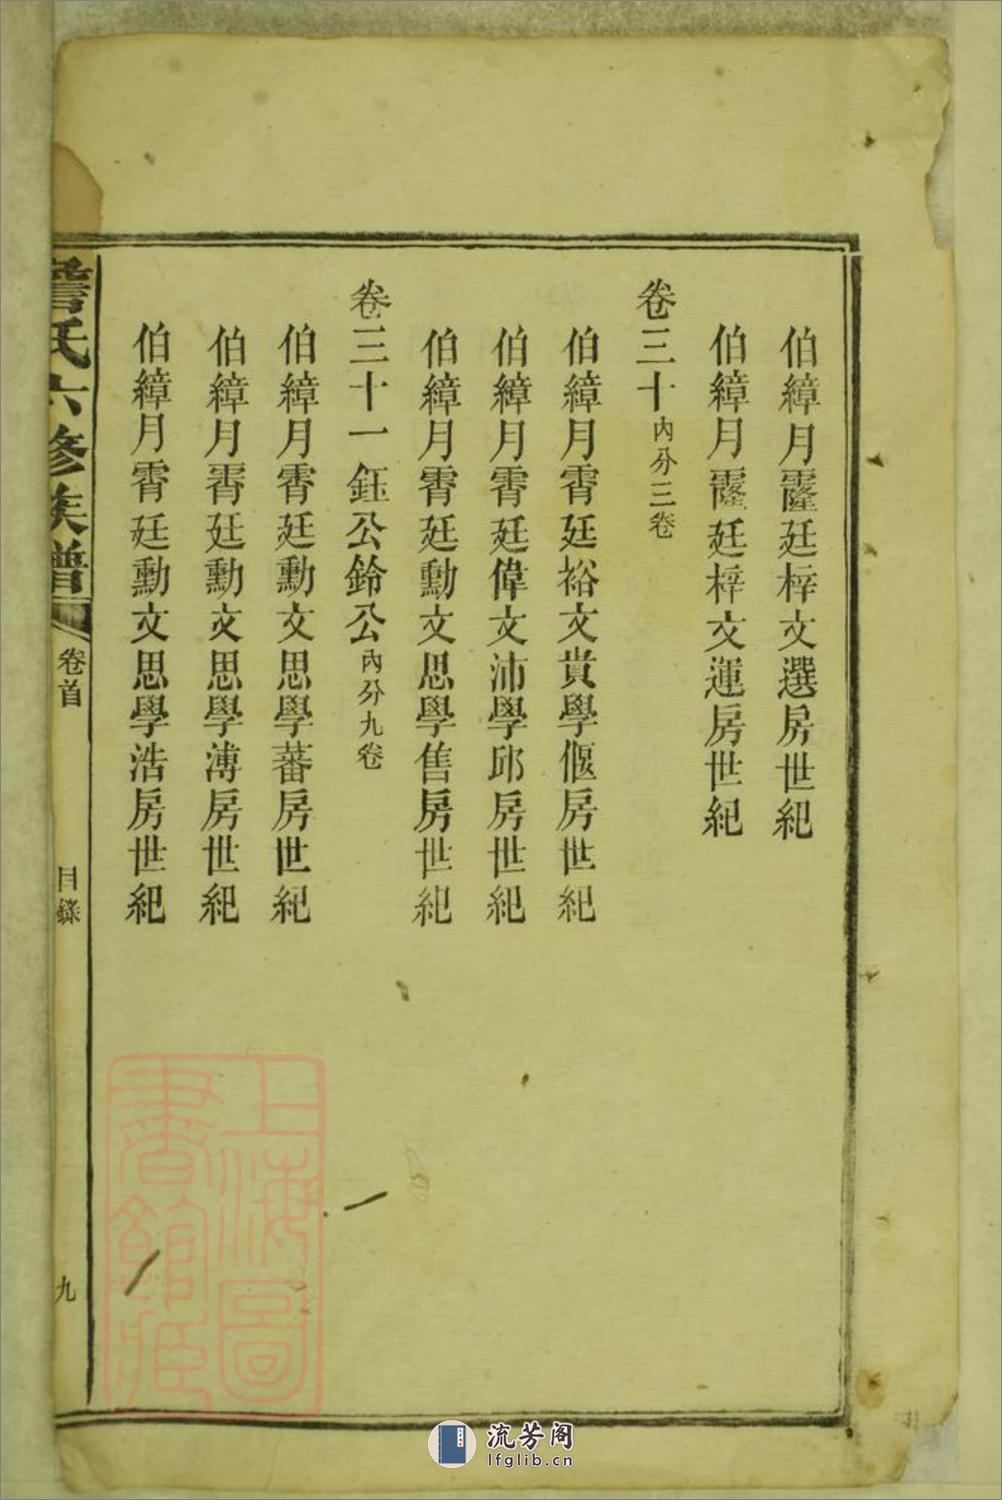 伯鏱月霳廷梓文選房世紀
伯鏱月霳廷梓文運房世紀
卷三十內分三卷
伯鏱月霄廷裕文貴學偃房世紀
伯鏱月霄廷偉文沛學邱房世紀
伯鏱月霄廷勳文思學售房世紀
卷三十一鈺公鈴公內分九卷
伯鏱月霄廷勳文思學蕃房世紀
伯鏱月霄廷勳文思學溥房世紀
伯鏱月霄廷勳文思學浩房世紀
詹氏六修族譜
卷首
目錄
九
上海圖書館藏
流芳阁
lfglib.cn